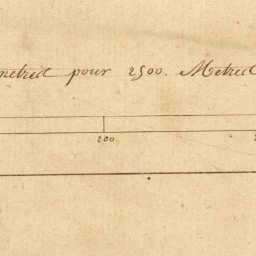 metres pour 2500. Metres
200.